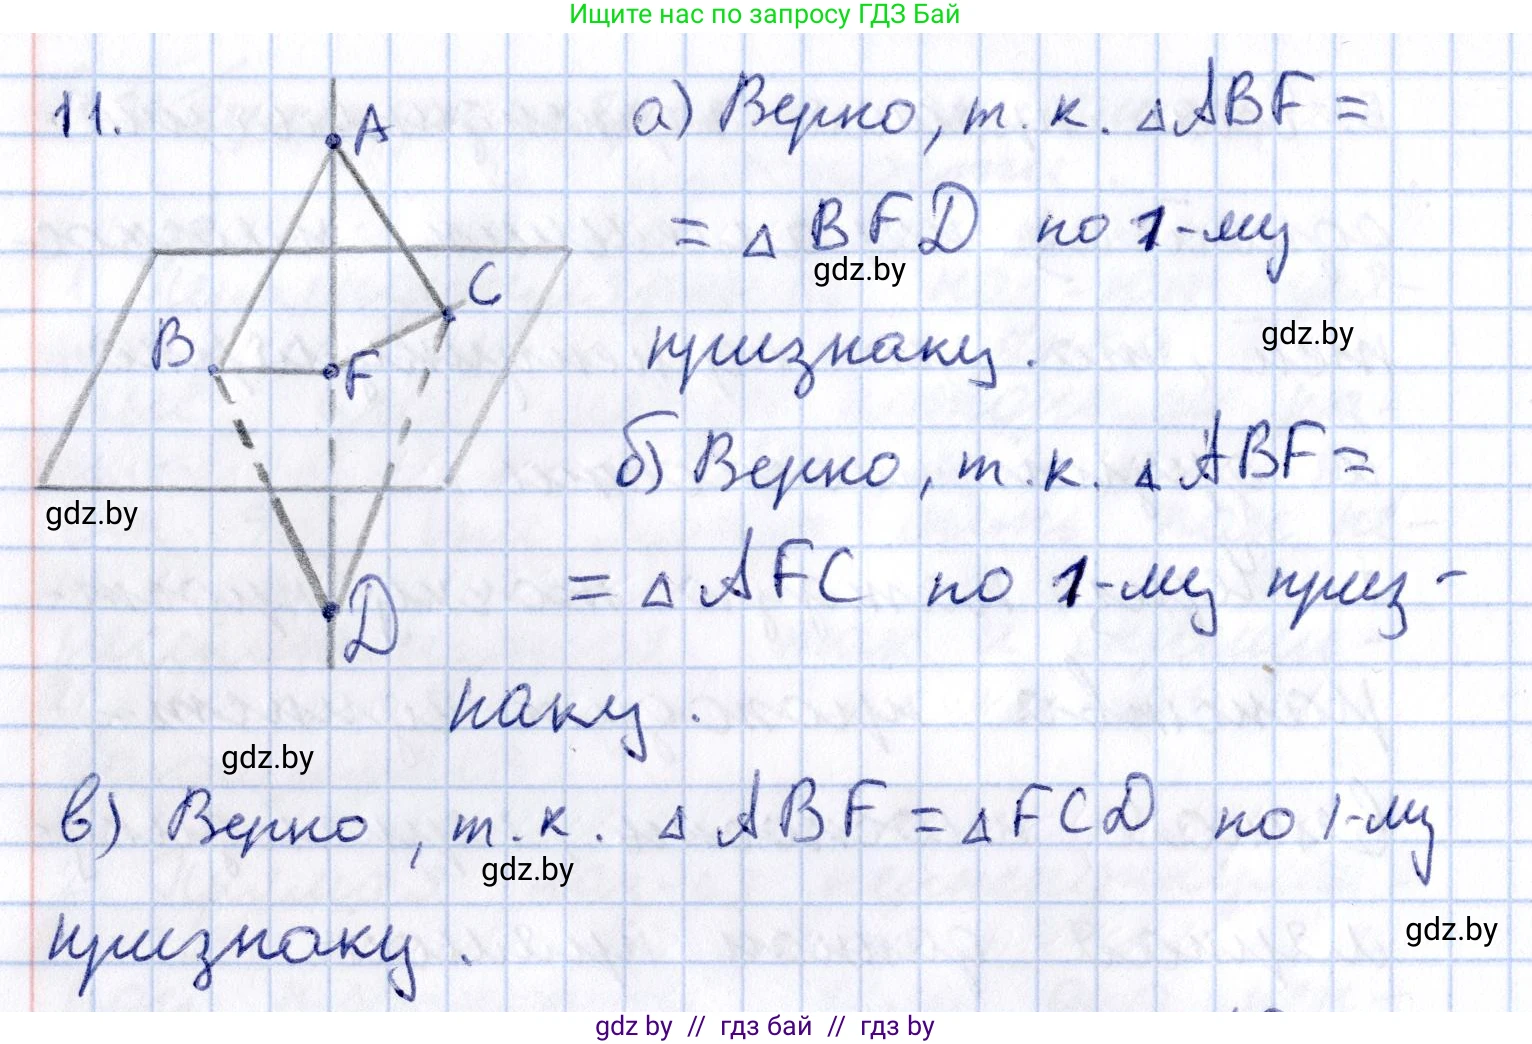 Ищите нас по запросу ГДЗ Бай
11.
A
B
C
F
D
а) Верно, т. к. △ABF =
= △ BFD по 1-му
gdz.by
gdz.by
признаку.
б) Верно, т. к. △ABF =
gdz.by
= △AFC по 1-му приз-
наку.
gdz.by
в) Верно, т. к. △ABF = △FCD по 1-му
gdz.by
признаку.
gdz.by
gdz by // гдз бай // гдз by